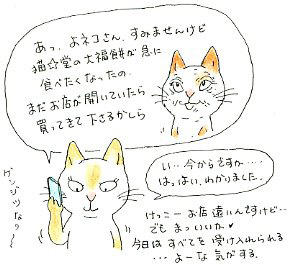 あっ、よネコさん、すみませんけど
猫☆堂の大福餅が急に
食べたくなったの.
まだお店が開いていたら
買ってきて下さるかしら
い…今からですか……
はっはい、わかりました.
けっこーお店遠いんですけど…
でもまっいいか♥
今日はすべてを受け入れられる
……よーな気がする.
ゲンジツなの〜